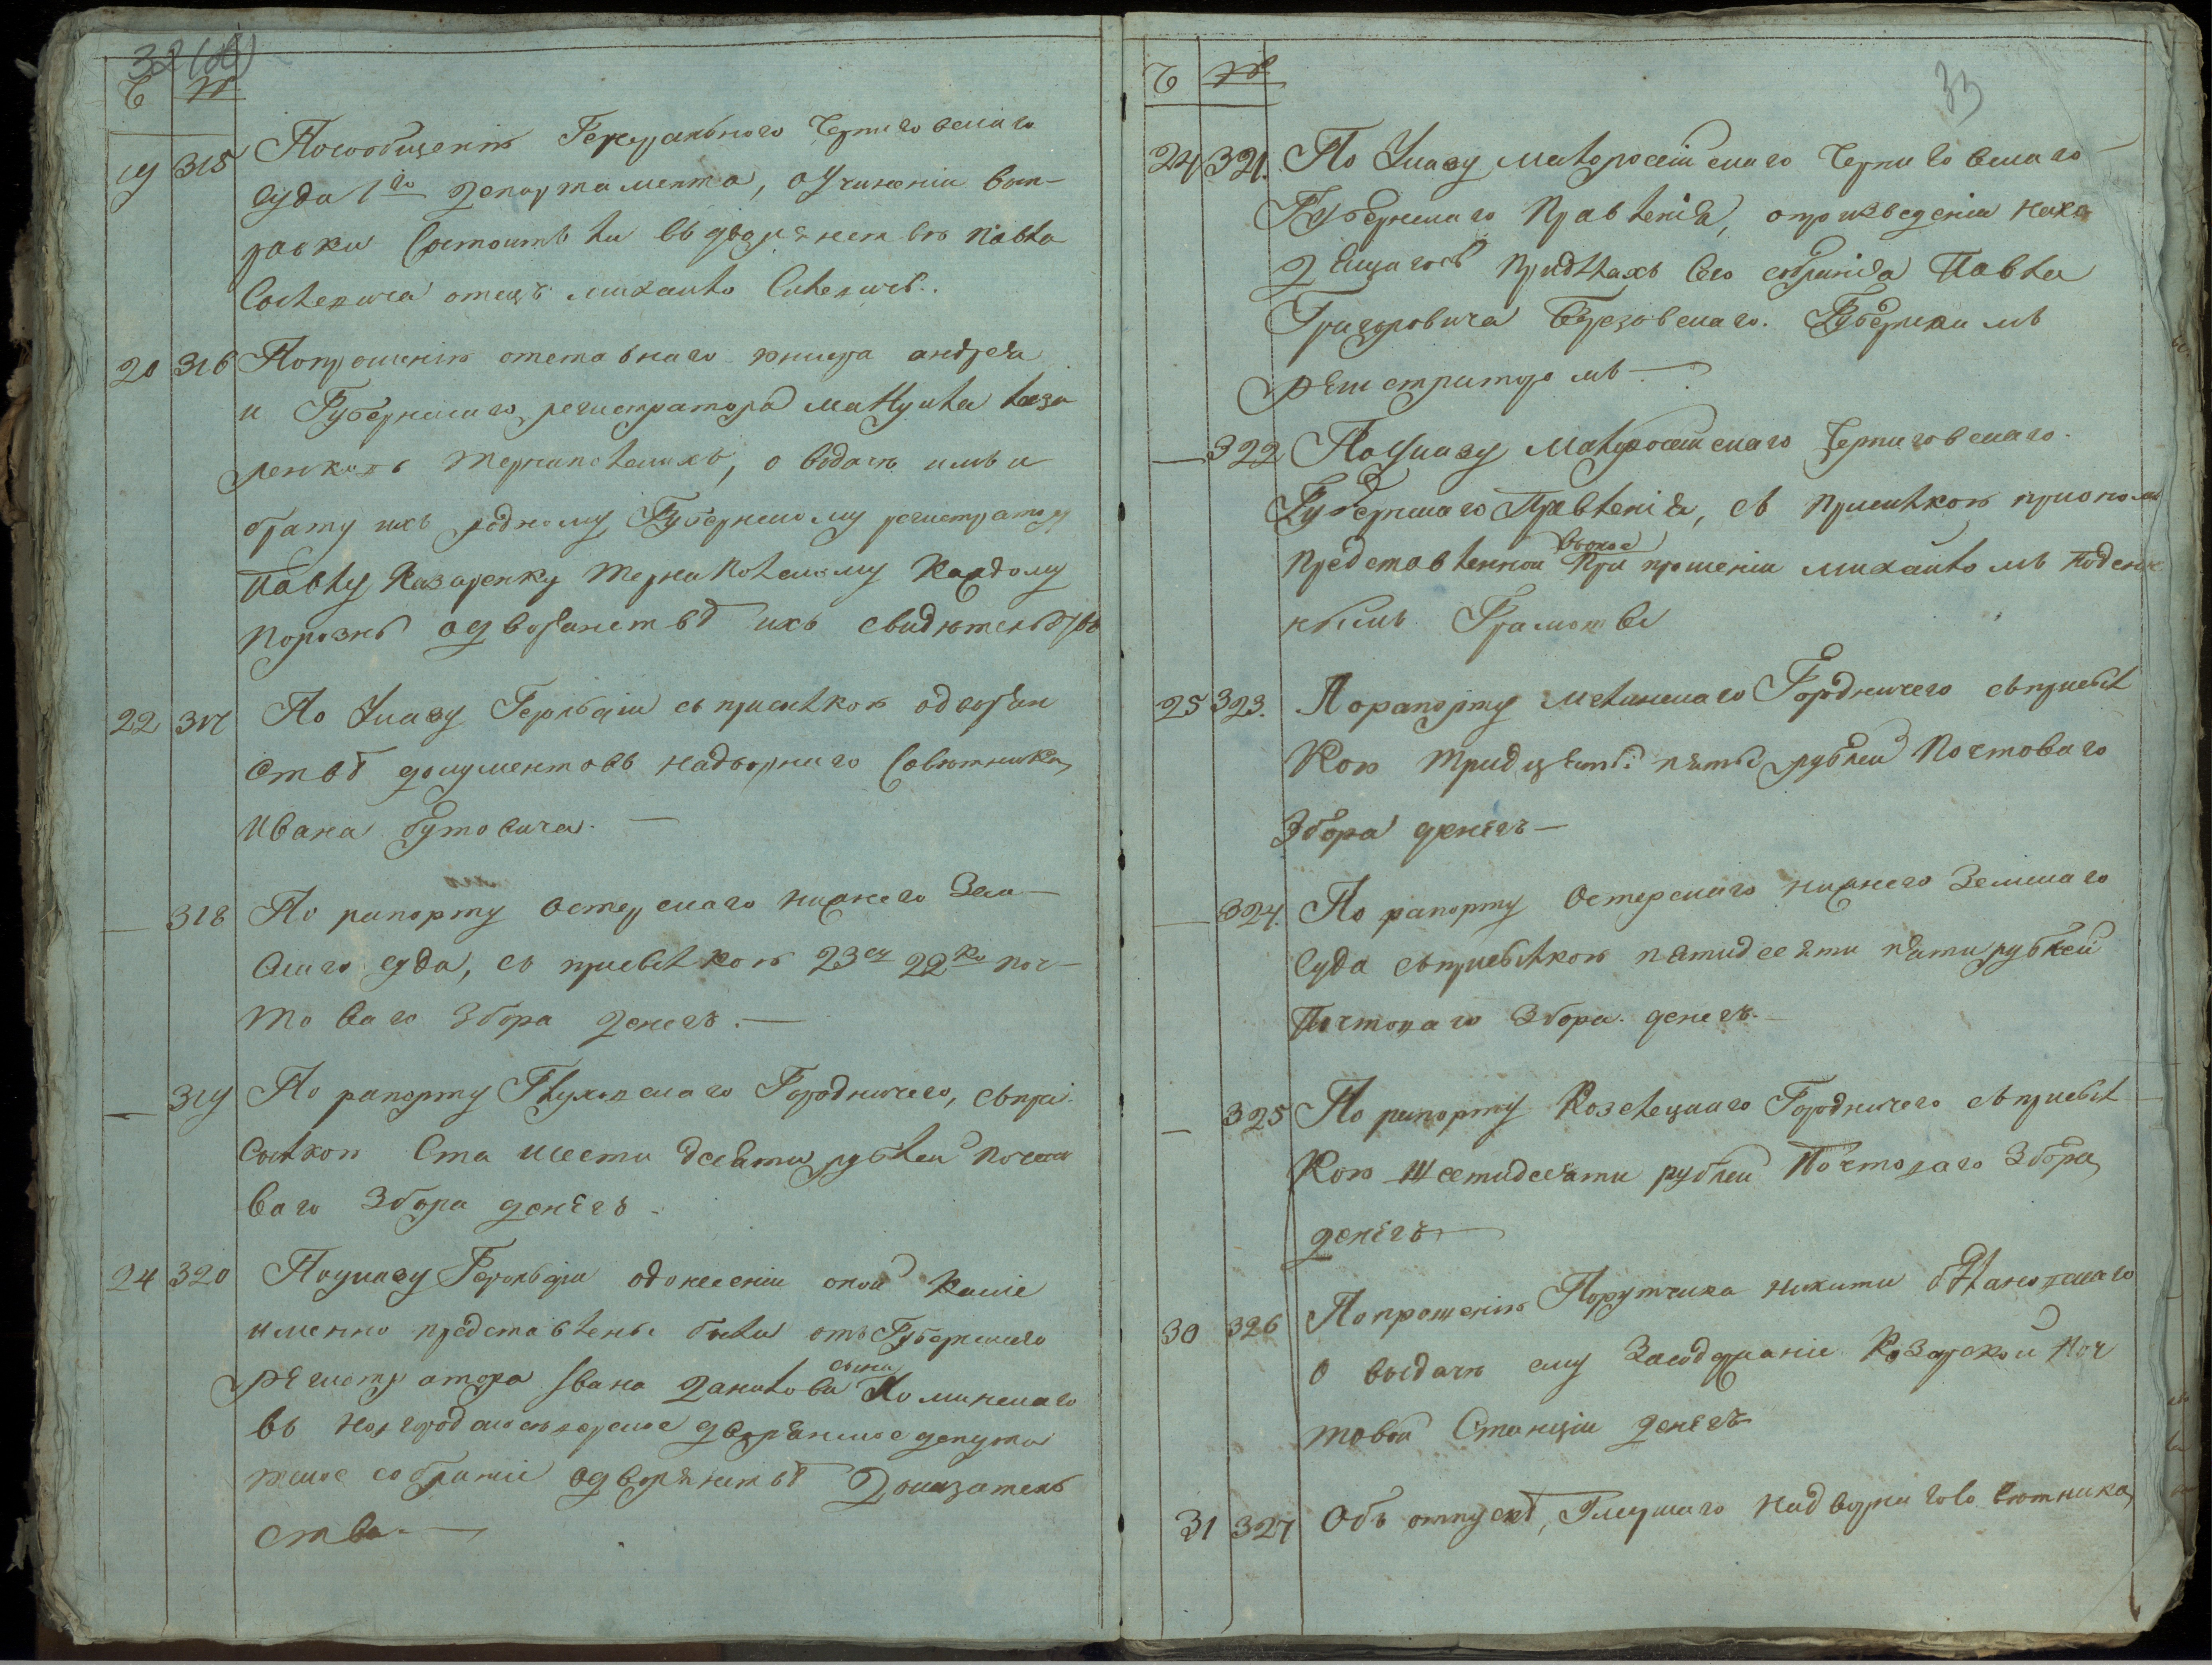 32(об)
Ч №
19 315 Посообщенію Генеральнаго Черниговскаго
Суда 1го департамента, оучиненіи вып-
равки Состоитъ ли въ дворянствѣ Павла
отецъ михаило
20 316 Попрошенію отставнаго андрея
и Губернскаго регистратора
о видачѣ имъ и
брату ихъ родному Губернскому регистратору
Павлу Казаренку каждому
порознь одворянствѣ ихъ свидѣтельствъ
22 317 По Указу Герольдіи съ присилкою одворян
ствѣ документовъ надворнаго Совѣтника
Ивана бутовича. —
— 318 По рапорту Остерскаго нижнего Зем-
скаго суда, съ присилкою 23 ру 22 ко поч-
товаго Збора денегъ. —
— 319 По рапорту Глуховскаго Городничего, съпри
силкою Ста шести десяти рублей почто
ваго Збора денегъ.
24 320 Поуказу Герольдіи одонесеніи оной какіе
именно представлены были отъ Губернскаго
регистратора Ивана данилова сына
въ новгородское дворянское депута
тское собраніе одворянствѣ доказатель
ства. —
33
Ч №
24 321. По Указу малоросійскаго Черниговскаго
Губернскаго Правленія, опроизведеніи нахо
дящагось придѣлахъ Сего собранія Павла
Григоровича Березовскаго. Губернскимъ
регистраторомъ —
— 322 Поуказу малоросійскаго Черниговскаго
Губернскаго Правленія, съ присилкою
представленной вьоное при прошеніи михайломъ
Грамоты
25 323. По рапорту мглинскаго Городничего съприсил
кою тридцять пять рублей почтоваго
Збора денегъ —
— 324. По рапорту Остерскаго нижнего Земскаго
Суда съприсилкою пятидесяти пяти рублей
Почтоваго Збора денегъ. —
— 325 По рапорту Козелецкаго Городничего съприсил
кою шестидесяти рублей Почтоваго Збора
денегъ —
30 326 Попрошенію Порутчика никити
о выдачѣ ему Засодержаніе Козарской поч
товой Станціи денегъ
31 327 Объ отпускѣ, надворнаго совѣтника